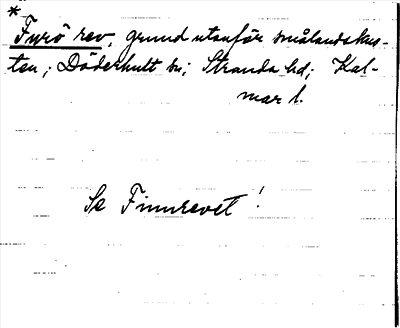 *
Furö rev, grund utanför smålandskus-
ten; Döderhult sn; Stranda hd; Kal-
mar l.
Se Finnrevet!